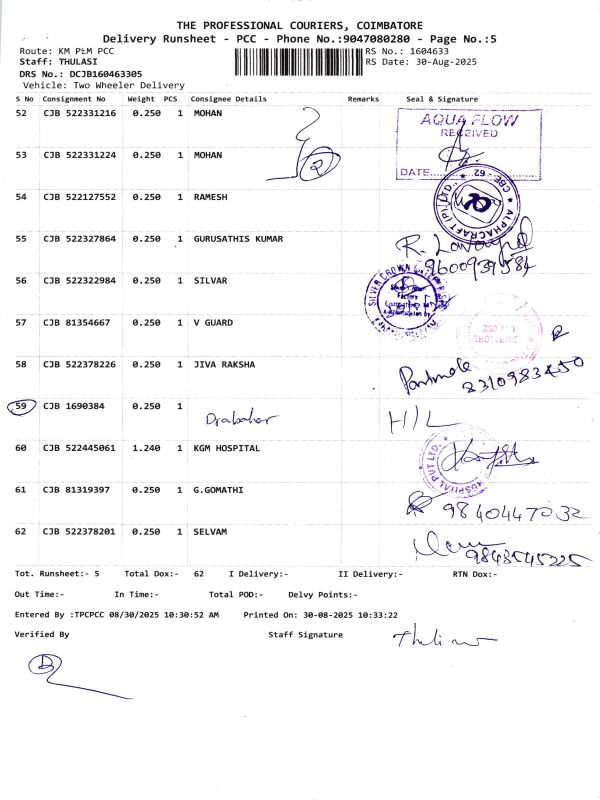 THE PROFESSIONAL COURIERS, COIMBATORE
Delivery Runsheet - PCC - Phone No.:9047080280 - Page No.:5
Route: KM PLM PCC RS No.: 1604633
Staff: THULASI RS Date: 30-Aug-2025
DRS No.: DCJB160463305
Vehicle: Two Wheeler Delivery
S No Consignment No Weight PCS Consignee Details Remarks Seal & Signature
52 CJB 522331216 0.250 1 MOHAN
AQUA FLOW
RECEIVED
DATE
53 CJB 522331224 0.250 1 MOHAN 2
54 CJB 522127552 0.250 1 RAMESH
ALPHACRAFT (P) LTD. CBE-62
55 CJB 522327864 0.250 1 GURUSATHIS KUMAR
9600939584
56 CJB 522322984 0.250 1 SILVAR
SILVER CROWN
57 CJB 81354667 0.250 1 V GUARD
58 CJB 522378226 0.250 1 JIVA RAKSHA
8310983450
59 CJB 1690384 0.250 1 HIL
60 CJB 522445061 1.240 1 KGM HOSPITAL
HOSPITAL PVT LTD.
61 CJB 81319397 0.250 1 G.GOMATHI
9840447032
62 CJB 522378201 0.250 1 SELVAM
9843545225
Tot. Runsheet:- 5 Total Dox:- 62 I Delivery:- II Delivery:- RTN Dox:-
Out Time:- In Time:- Total POD:- Delvy Points:-
Entered By :TPCPCC 08/30/2025 10:30:52 AM Printed On: 30-08-2025 10:33:22
Verified By Staff Signature